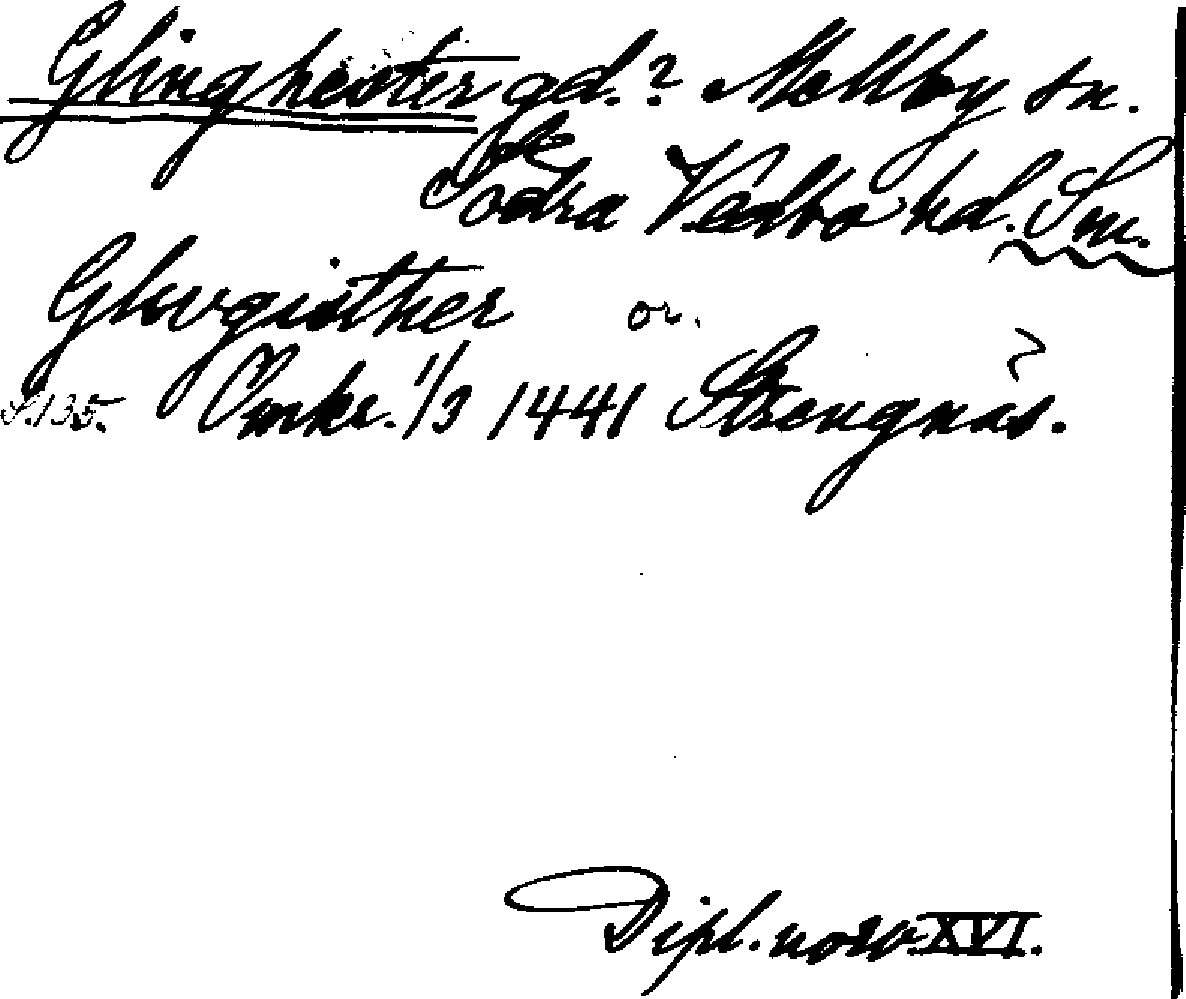 Glinghester gd.? Mellby sn.
Södra Vedbo hd. Sm.
Gluugisther or.
S.135. Omkr. 1/3 1441 Strengnäs.
Dipl. norv XVI.